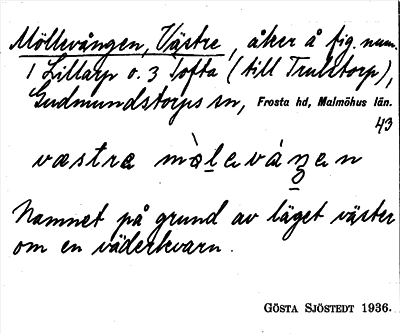 Möllevången, Västre, åker å fig. num.
1 Lillarp o. 3 Tofta (till Trulstorp),
Gudmundstorps sn, Frosta hd, Malmöhus län.
43
væstra mòlavåŋen
Namnet på grund av läget väster
om en väderkvarn.
GÖSTA SJÖSTEDT 1936.